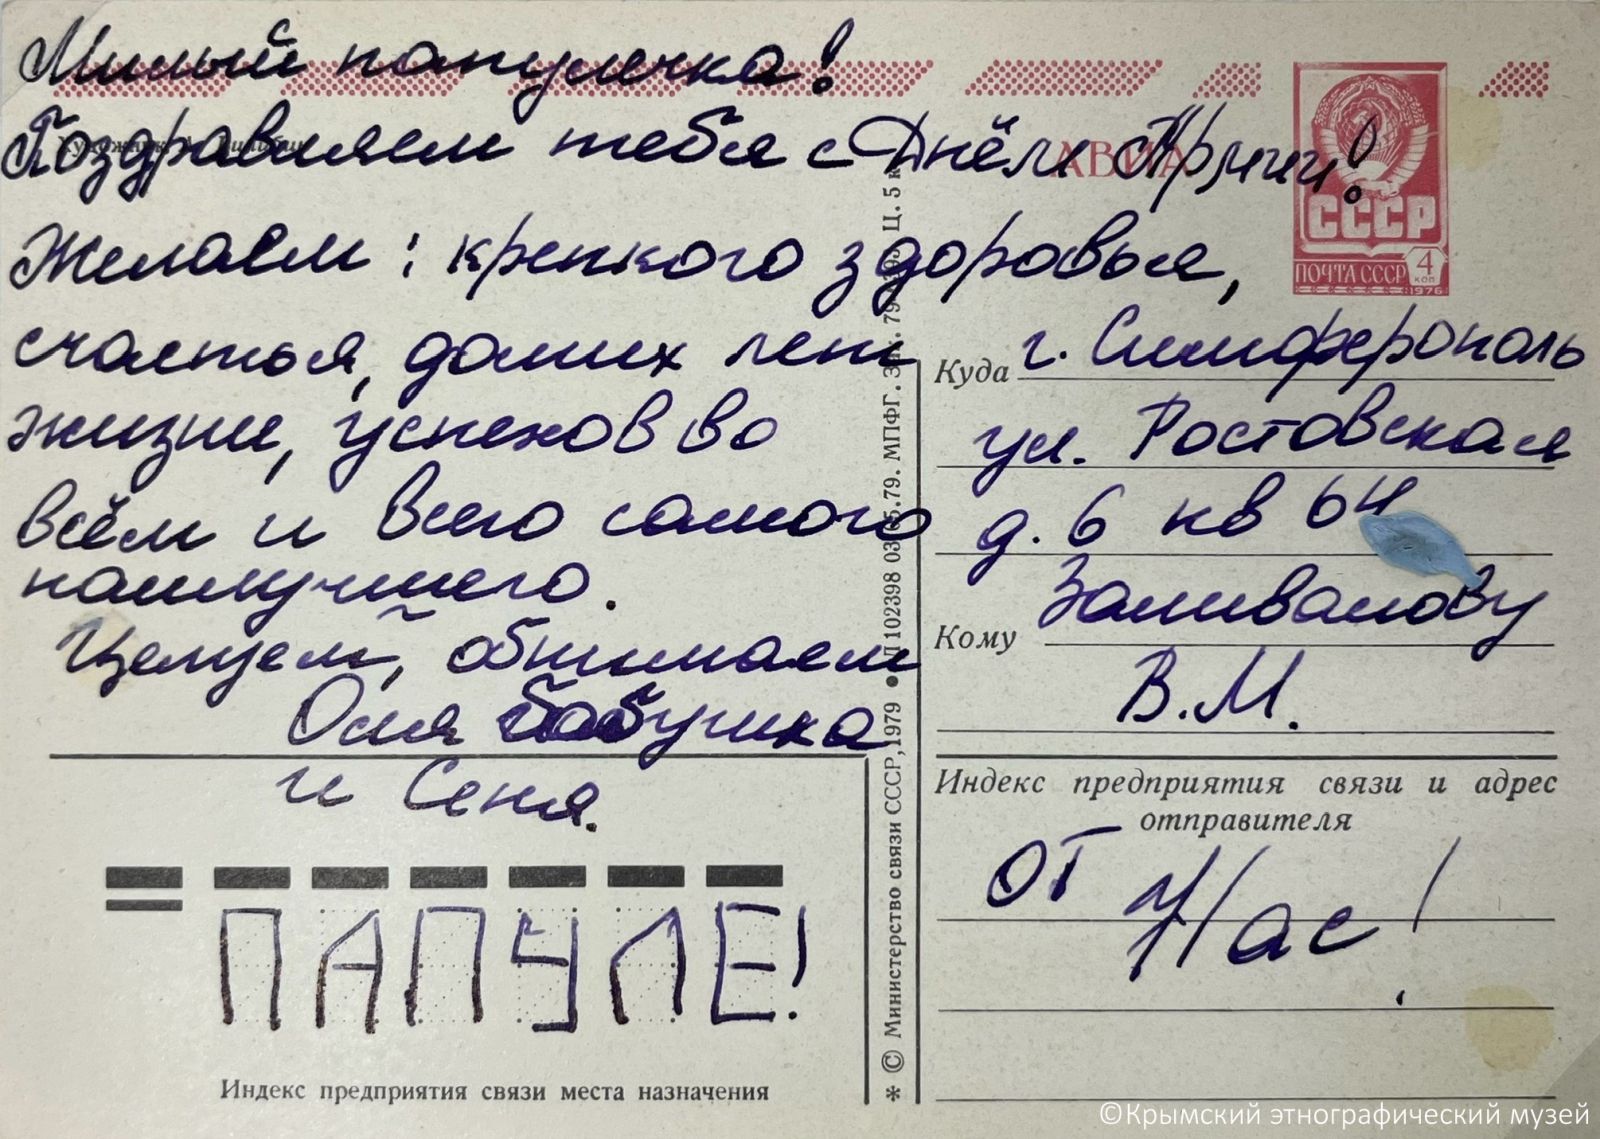 Милый папулечка!
Поздравляем тебя с Днём Армии!
Желаем: крепкого здоровья,
счастья, долгих лет
жизни, успехов во
всём и всего самого
наилучшего.
Целуем, обнимаем
Оля бабушка
и Сеня.
ПАПУЛЕ!
Индекс предприятия связи места назначения
* © Министерство связи СССР, 1979 •
102398 03.05.79. МПФГ. Ц. 5 к
АВИА
СССР
ПОЧТА СССР 4 КОП
1976
Куда г. Симферополь
ул. Ростовская
д. 6 кв 64
Кому Заливалову
В.М.
Индекс предприятия связи и адрес
отправителя
от
Нас!
©Крымский этнографический музей